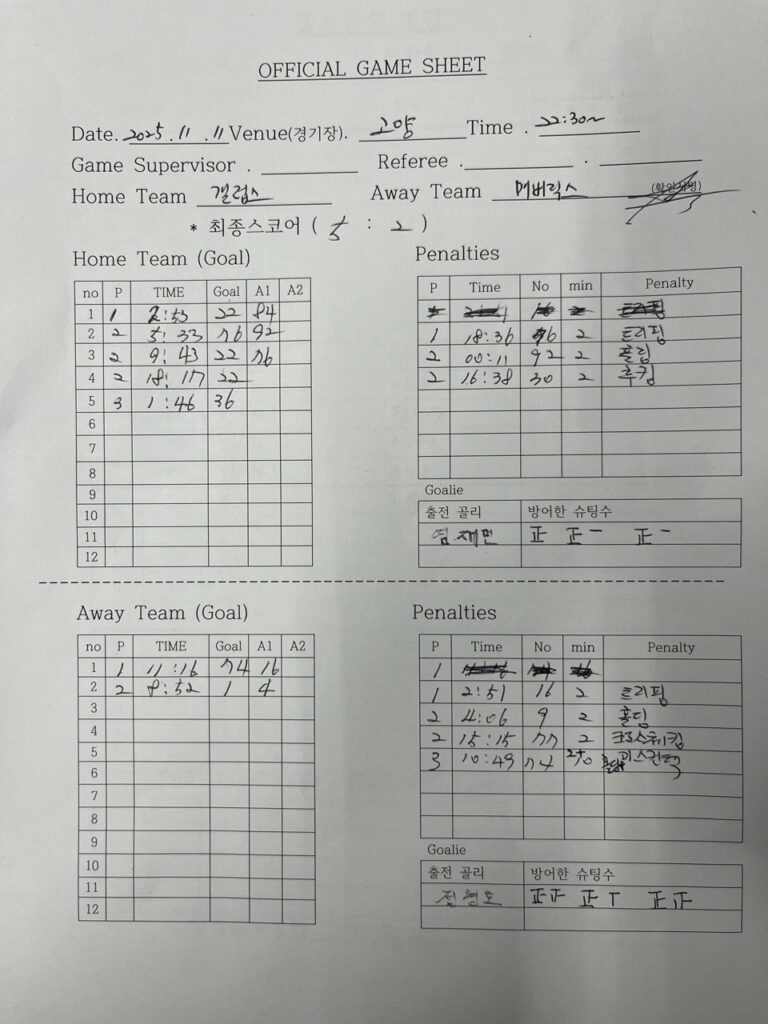 OFFICIAL GAME SHEET
Date. 2025.11.11 Venue(경기장). 고양 Time . 22:30~
Game Supervisor . Referee . .
Home Team 갤럽스 Away Team 머버릭스
* 최종스코어 ( 5 : 2 )
Home Team (Goal)
no P TIME Goal A1 A2
1 1 2:53 22 84
2 2 5:33 76 92
3 2 9:43 22 76
4 2 18:17 22
5 3 1:46 36
6
7
8
9
10
11
12
Penalties
P Time No min Penalty
1 18:36 76 2 트리핑
2 00:11 92 2
2 16:38 30 2 후킹
Goalie
출전 골리 방어한 슈팅수
염재민 正 正一 正一
Away Team (Goal)
no P TIME Goal A1 A2
1 1 11:16 74 16
2 2 8:52 1 4
3
4
5
6
7
8
9
10
11
12
Penalties
P Time No min Penalty
1
1 2:51 16 2 트리핑
2 4:06 9 2 홀딩
2 15:15 77 2 크로스체킹
3 10:49 74 2+10 미스컨덕
Goalie
출전 골리 방어한 슈팅수
正正 正丅 正正